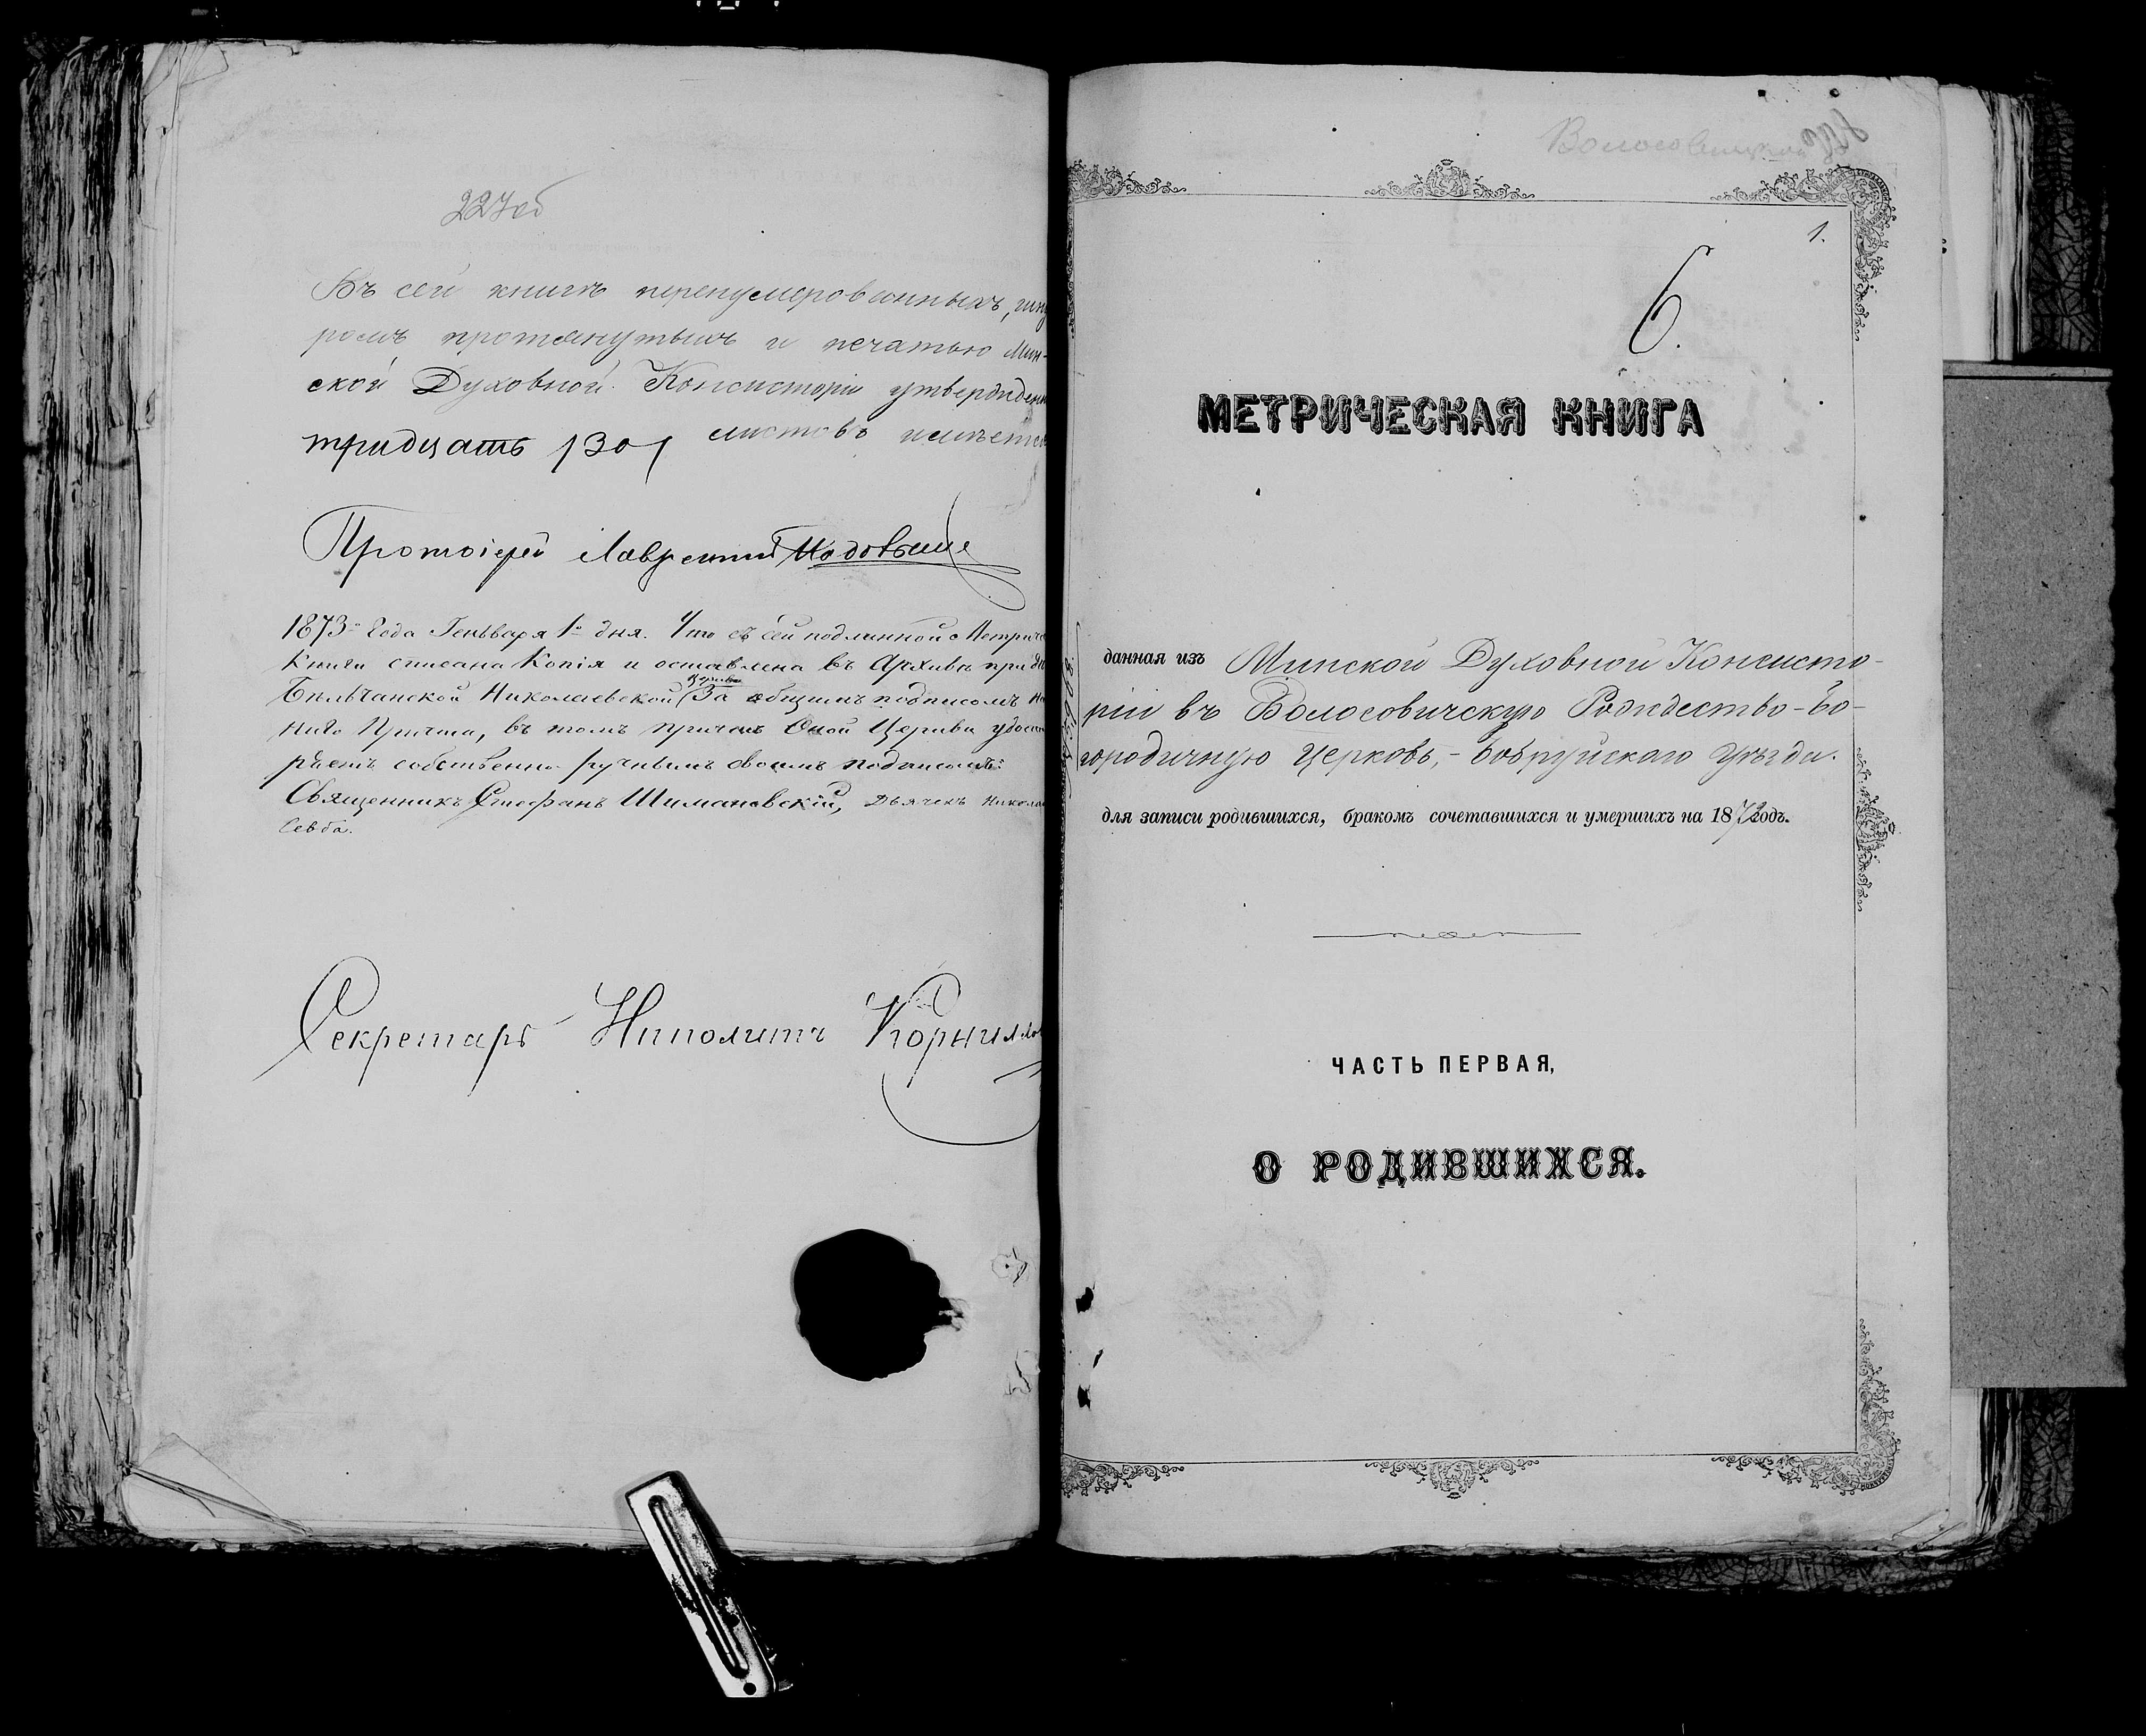 227об
Въ сей книгѣ перенумерованныхъ, шну
ромъ протянутыхъ и печатью Мин-
ской Духовной Консисторіи утвержден
тридцать /30/ листовъ имѣется
Протоіерей Лаврентий
1873 года Генъваря 1 дня. Что съ сей подлинной Метриче
Книги списана Копія и оставлена въ Архивѣ при
церкви
Николаевской За общимъ подписомъ
Причта, въ томъ причтъ Оной Церкви удосто
ряетъ собственно ручнымъ своимъ подписомъ:
Священникъ Стефанъ Шимановскій, Дьячекъ Никола
Секретарь Иполитъ Корнил
Волосовичская
1.
6.
МЕТРИЧЕСКАЯ КНИГА
данная изъ Минской Духовной Консисто-
ріи въ Волосовичскую Рождество-Бо-
городичную церковь,- Бобруйскаго уѣзда.
для записи родившихся, бракомъ сочетавшихся и умершихъ на 1872 годъ.
ЧАСТЬ ПЕРВАЯ,
О РОДИВШИХСЯ.